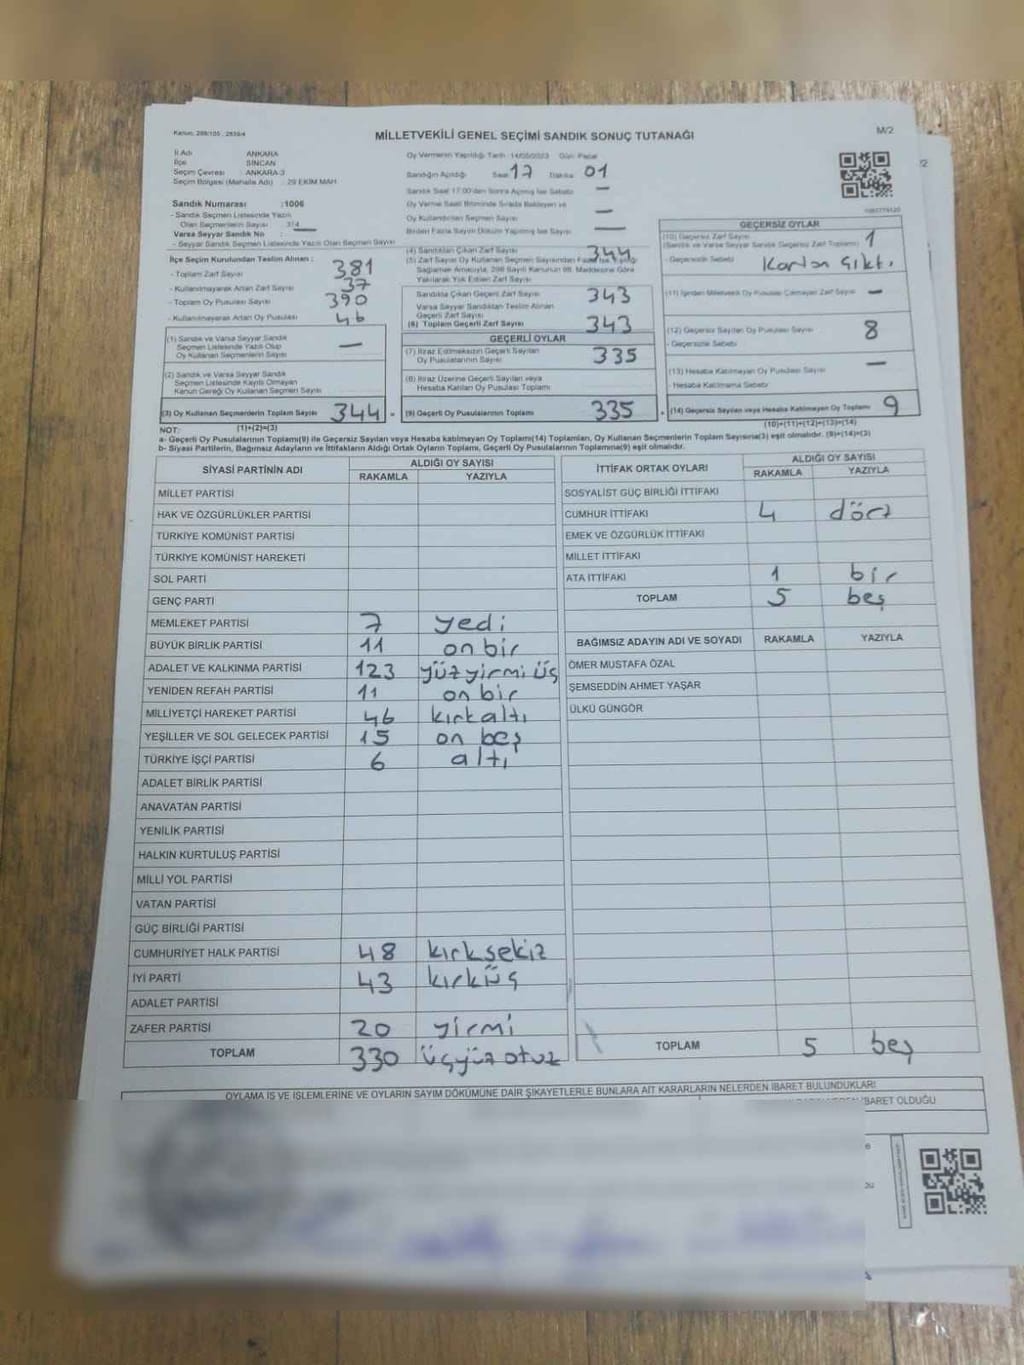 Kanun: 298/105 ; 2839/4
MİLLETVEKİLİ GENEL SEÇİMİ SANDIK SONUÇ TUTANAĞI
M/2
İl Adı ANKARA
İlçe SİNCAN
Seçim Çevresi : ANKARA-3
Seçim Bölgesi (Mahalle Adı) : 29 EKİM MAH
Sandık Numarası :1006
- Sandık Seçmen Listesinde Yazılı
Olan Seçmenlerin Sayısı
Varsa Seyyar Sandık No : —
- Seyyar Sandık Seçmen Listesinde Yazılı Olan Seçmen Sayısı
İlçe Seçim Kurulundan Teslim Alınan :
- Toplam Zarf Sayısı 381
- Kullanılmayarak Artan Zarf Sayısı 37
- Toplam Oy Pusulası Sayısı 390
- Kullanılmayarak Artan Oy Pusulası 46
(1) Sandık ve Varsa Seyyar Sandık
Seçmen Listesinde Yazılı Olup
Oy Kullanan Seçmenlerin Sayısı —
(2) Sandık ve Varsa Seyyar Sandık
Seçmen Listesinde Kayıtlı Olmayan
Kanun Gereği Oy Kullanan Seçmen Sayısı
(3) Oy Kullanan Seçmenlerin Toplam Sayısı 344 =
(1)+(2)=(3)
Oy Vermenin Yapıldığı Tarih : 14/05/2023 Gün: Pazar
Sandığın Açıldığı Saat 17 Dakika 01
Sandık Saat 17:00'den Sonra Açılmış İse Sebebi —
Oy Verme Saati Bitiminde Sırada Bekleyen ve
Oy Kullandırılan Seçmen Sayısı —
Birden Fazla Sayım Döküm Yapılmış İse Sayısı —
(4) Sandıktan Çıkan Zarf Sayısı 344
(5) Zarf Sayısı Oy Kullanan Seçmen Sayısından Fazla İse Eşitliği
Sağlamak Amacıyla, 298 Sayılı Kanunun 98. Maddesine Göre
Yakılarak Yok Edilen Zarf Sayısı
Sandıkta Çıkan Geçerli Zarf Sayısı 343
Varsa Seyyar Sandıktan Teslim Alınan
Geçerli Zarf Sayısı
(6) Toplam Geçerli Zarf Sayısı 343
GEÇERLİ OYLAR
(7) İtiraz Edilmeksizin Geçerli Sayılan
Oy Pusulalarının Sayısı 335
(8) İtiraz Üzerine Geçerli Sayılan veya
Hesaba Katılan Oy Pusulası Toplamı
(9) Geçerli Oy Pusulalarının Toplamı 335 +
GEÇERSİZ OYLAR
(10) Geçersiz Zarf Sayısı
(Sandık ve Varsa Seyyar Sandık Geçersiz Zarf Toplamı) 1
- Geçersizlik Sebebi Karton Çıktı
(11) İçinden Milletvekili Oy Pusulası Çıkmayan Zarf Sayısı —
(12) Geçersiz Sayılan Oy Pusulası Sayısı 8
- Geçersizlik Sebebi
(13) Hesaba Katılmayan Oy Pusulası Sayısı —
- Hesaba Katılmama Sebebi
(14) Geçersiz Sayılan veya Hesaba Katılmayan Oy Toplamı 9
(10)+(11)+(12)+(13)=(14)
NOT:
a- Geçerli Oy Pusulalarının Toplamı(9) ile Geçersiz Sayılan veya Hesaba katılmayan Oy Toplamı(14) Toplamları, Oy Kullanan Seçmenlerin Toplam Sayısına(3) eşit olmalıdır. (9)+(14)=(3)
b- Siyasi Partilerin, Bağımsız Adayların ve İttifakların Aldığı Ortak Oyların Toplamı, Geçerli Oy Pusulalarının Toplamına(9) eşit olmalıdır.
SİYASİ PARTİNİN ADI ALDIĞI OY SAYISI
RAKAMLA YAZIYLA
MİLLET PARTİSİ
HAK VE ÖZGÜRLÜKLER PARTİSİ
TÜRKİYE KOMÜNİST PARTİSİ
TÜRKİYE KOMÜNİST HAREKETİ
SOL PARTİ
GENÇ PARTİ
MEMLEKET PARTİSİ 7 yedi
BÜYÜK BİRLİK PARTİSİ 11 on bir
ADALET VE KALKINMA PARTİSİ 123 yüzyirmi üç
YENİDEN REFAH PARTİSİ 11 on bir
MİLLİYETÇİ HAREKET PARTİSİ 46 kırk altı
YEŞİLLER VE SOL GELECEK PARTİSİ 15 on beş
TÜRKİYE İŞÇİ PARTİSİ 6 altı
ADALET BİRLİK PARTİSİ
ANAVATAN PARTİSİ
YENİLİK PARTİSİ
HALKIN KURTULUŞ PARTİSİ
MİLLİ YOL PARTİSİ
VATAN PARTİSİ
GÜÇ BİRLİĞİ PARTİSİ
CUMHURİYET HALK PARTİSİ 48 kırksekiz
İYİ PARTİ 43 kırküç
ADALET PARTİSİ
ZAFER PARTİSİ 20 yirmi
TOPLAM 330 üçyüz otuz
İTTİFAK ORTAK OYLARI ALDIĞI OY SAYISI
RAKAMLA YAZIYLA
SOSYALİST GÜÇ BİRLİĞİ İTTİFAKI
CUMHUR İTTİFAKI 4 dört
EMEK VE ÖZGÜRLÜK İTTİFAKI
MİLLET İTTİFAKI
ATA İTTİFAKI 1 bir
TOPLAM 5 beş
BAĞIMSIZ ADAYIN ADI VE SOYADI RAKAMLA YAZIYLA
ÖMER MUSTAFA ÖZAL
ŞEMSEDDİN AHMET YAŞAR
ÜLKÜ GÜNGÖR
TOPLAM 5 beş
OYLAMA İŞ VE İŞLEMLERİNE VE OYLARIN SAYIM DÖKÜMÜNE DAİR ŞİKAYETLERLE BUNLARA AİT KARARLARIN NELERDEN İBARET BULUNDUKLARI
İBARET OLDUĞU